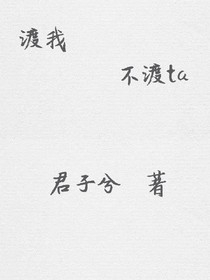 渡我
不渡ta
君子兮 著